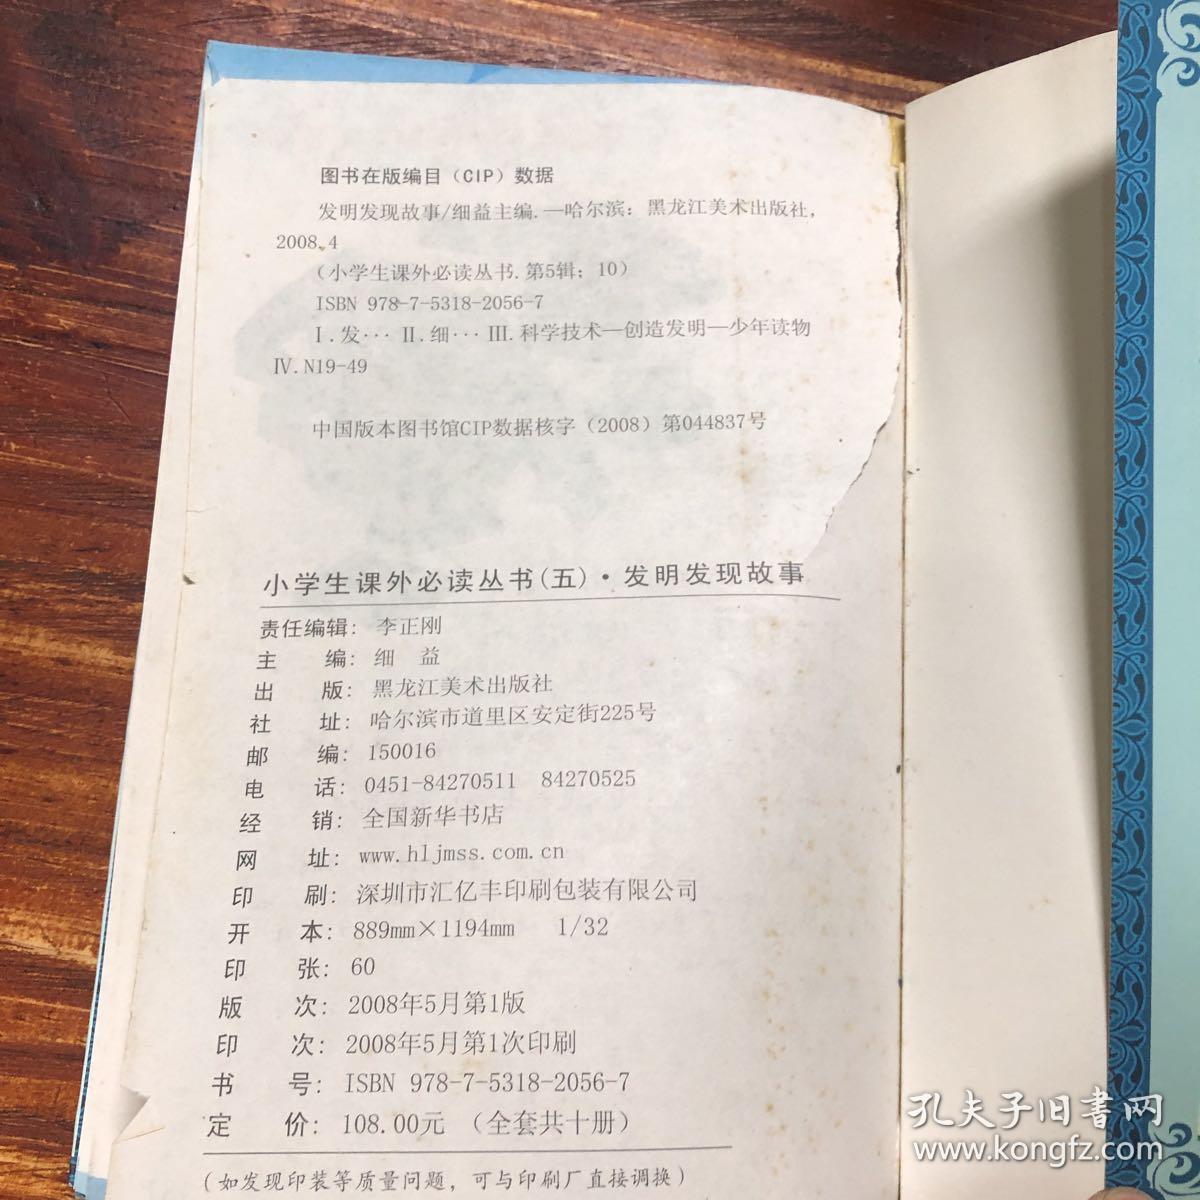 图书在版编目（CIP）数据
发明发现故事/细益主编.—哈尔滨：黑龙江美术出版社，
2008.4
（小学生课外必读丛书.第5辑；10）
ISBN 978-7-5318-2056-7
Ⅰ.发… Ⅱ.细… Ⅲ.科学技术—创造发明—少年读物
Ⅳ.N19-49
中国版本图书馆CIP数据核字（2008）第044837号
小学生课外必读丛书(五)·发明发现故事
责任编辑：李正刚
主 编：细 益
出 版：黑龙江美术出版社
社 址：哈尔滨市道里区安定街225号
邮 编：150016
电 话：0451-84270511 84270525
经 销：全国新华书店
网 址：www.hljmss.com.cn
印 刷：深圳市汇亿丰印刷包装有限公司
开 本：889mm×1194mm 1/32
印 张：60
版 次：2008年5月第1版
印 次：2008年5月第1次印刷
书 号：ISBN 978-7-5318-2056-7
定 价：108.00元 （全套共十册）
（如发现印装等质量问题，可与印刷厂直接调换）
孔夫子旧书网
www.kongfz.com